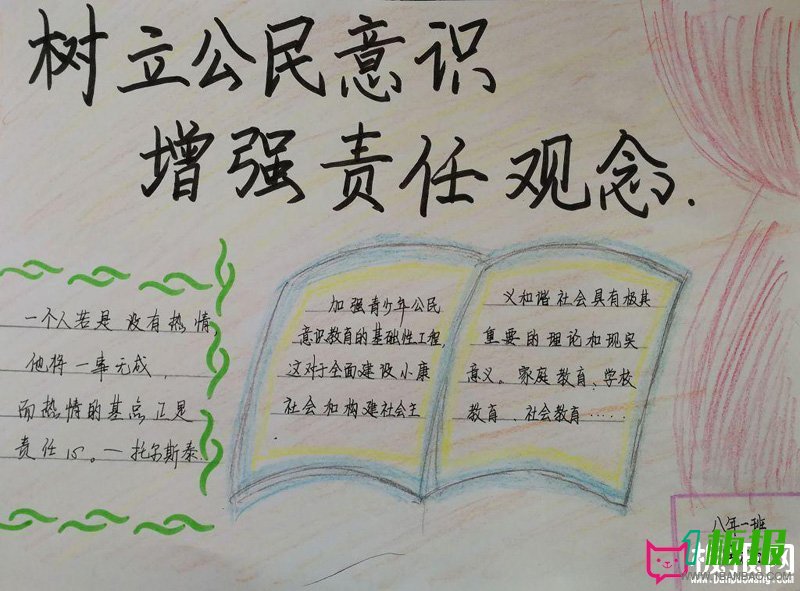 树立公民意识
增强责任观念.
一个人若是没有热情
他将一事无成,
而热情的基点正是
责任心。一托尔斯泰.
加强青少年公民
意识教育的基础性工程,
这对于全面建设小康
社会和构建社会主
义和谐社会具有极其
重要的理论和现实
意义。家庭教育、学校
教育、社会教育……
八年一班
1板报
WWW.1BANBAO.COM